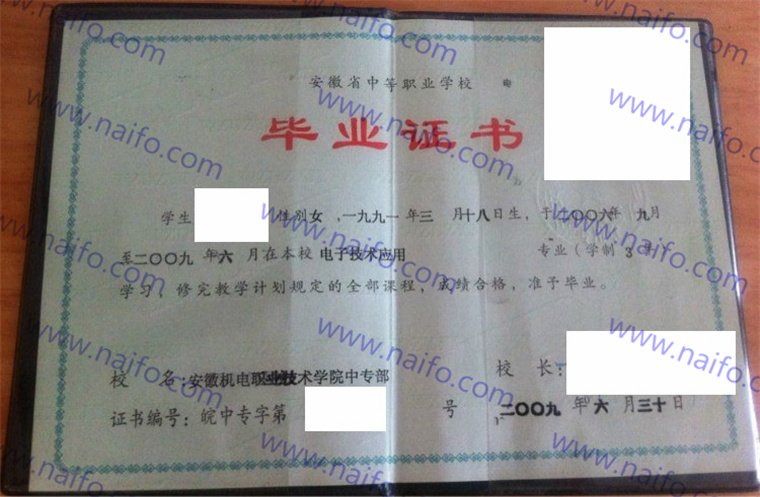 安徽省中等职业学校
毕业证书
学生 性别女,一九九一年三月十八日生,于二〇〇六年九月
至二〇〇九年六月在本校电子技术应用 专业(学制3年)
学习,修完教学计划规定的全部课程,成绩合格,准予毕业。
校名:安徽机电职业技术学院中专部 校长:
证书编号:皖中专字第 号 二〇〇九年六月三十日
www.naifo.com